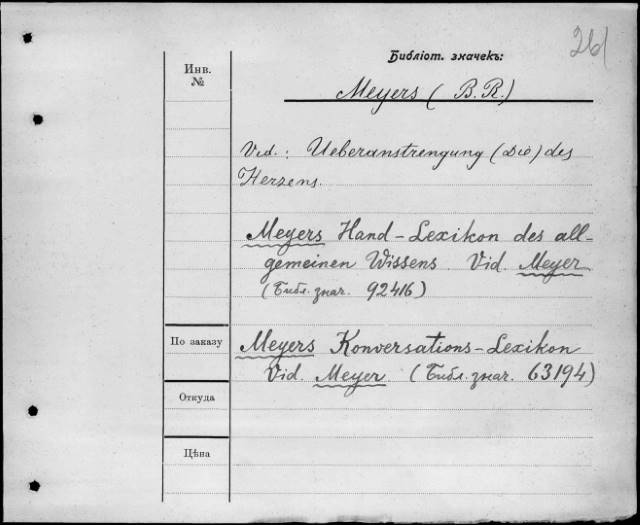 26/
Библіот. значекъ:
Инв.
№
Meyers (B. R.)
Vid.: Ueberanstrengung (Die) des
Herzens.
Meyers Hand-Lexikon des all-
gemeinen Wissens. Vid. Meyer
(Библ. знач. 92416)
По заказу
Meyers Konversations-Lexikon
Vid. Meyer (Библ. знач. 63194)
Откуда
Цѣна